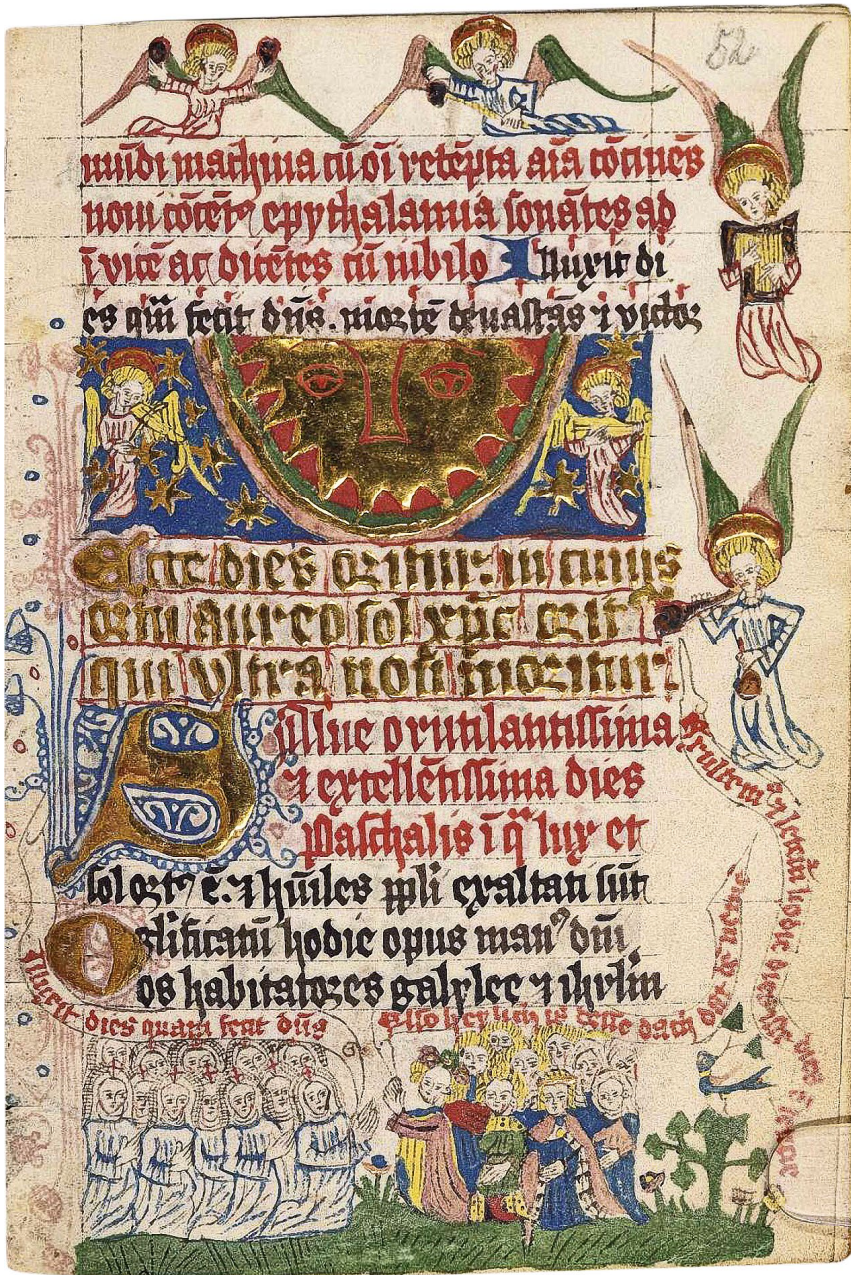 52
mūdi machina cū oī retēpta aīa cōcinēs
noui cōcēt⁹ epythalamia sonātes ad
īvicē ac dicētes cū iubilo Illuxit di
es quā fecit dn̄s. mortē deuastās ⁊ victor
Ecce dies oritur: in cuius
ortu aureo sol xp̄c erit
qui vltra nō moritur:
Salue o rutilantissima
⁊ excellētissima dies
Paschalis ī qͣ lux et
sol ort⁹ ē. ⁊ hūiles pp̄li exaltati sūt
O glīficatū hodie opus man⁹ dn̄i
os habitatores galylee ⁊ ihrl̄m
Illuxit dies quam fecit dn̄s
Also heylich is desse dach dat
Exultem⁹ ⁊ letem̄ hodie